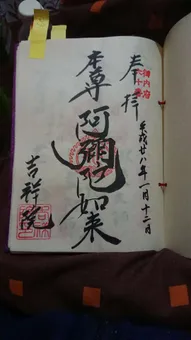 奉拝
平成廿八年一月十二日
本尊 阿彌陀如来
吉祥院